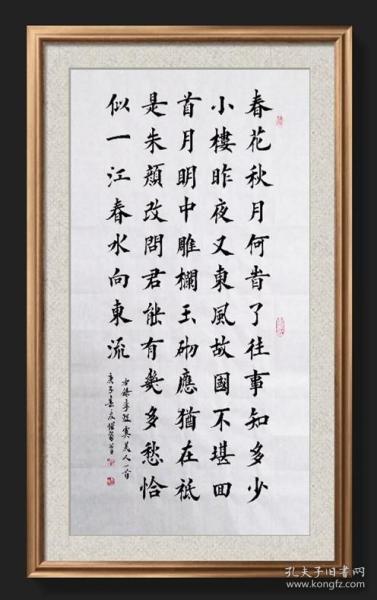 春花秋月何旹了往事知多少
小樓昨夜又東風故國不堪回
首月明中雕欄玉砌應猶在祗
是朱顏改問君能有幾多愁恰
似一江春水向東流
右錄李煜虞美人一首
庚子春
孔夫子旧书网
www.kongfz.com